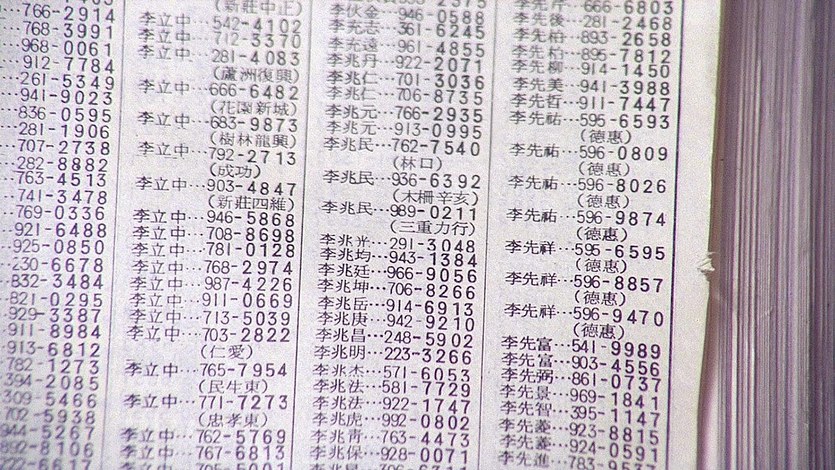 766-2914
768-3991
968-0061
912-7784
261-5349
941-9023
836-0595
281-1906
707-2738
282-8882
763-4513
741-3478
769-0336
921-6488
925-0850
230-6678
832-3484
821-0295
929-3387
911-8984
913-6812
782-1273
394-2085
309-5466
702-5938
944-5267
892-8106
(新莊中正)
李立中…542-4102
李立中…712-3370
李立中…281-4083
(蘆洲復興)
李立中…666-6482
(花園新城)
李立中…683-9873
(樹林龍興)
李立中…792-2713
(成功)
李立中…903-4847
(新莊四維)
李立中…946-5868
李立中…708-8698
李立中…781-0128
李立中…768-2974
李立中…987-4226
李立中…911-0669
李立中…713-5039
李立中…703-2822
(仁愛)
李立中…765-7954
(民生東)
李立中…771-7273
(忠孝東)
李立中…762-5769
李立中…767-6813
李伏金…946-0588
李充志…361-6245
李充遠…961-4855
李兆丹…922-2071
李兆仁…701-3036
李兆仁…706-8735
李兆元…766-2935
李兆元…913-0995
李兆民…762-7540
(林口)
李兆民…936-6392
(木柵辛亥)
李兆民…989-0211
(三重力行)
李兆光…291-3048
李兆均…943-1384
李兆廷…966-9056
李兆坤…706-8266
李兆岳…914-6913
李兆庚…942-9210
李兆昌…248-5902
李兆明…223-3266
李兆杰…571-6053
李兆法…581-7729
李兆法…922-1747
李兆虎…992-0802
李兆青…763-4473
李兆保…928-0071
666-6803
李先後…281-2468
李先柏…893-2658
李先柏…895-7812
李先柳…914-1450
李先美…941-3988
李先哲…911-7447
李先祐…595-6593
(德惠)
李先祐…596-0809
(德惠)
李先祐…596-8026
(德惠)
李先祐…596-9874
(德惠)
李先祥…595-6595
(德惠)
李先祥…596-8857
(德惠)
李先祥…596-9470
(德惠)
李先富…541-9989
李先富…903-4556
李先弼…861-0737
李先景…969-1841
李先智…395-1147
李先菱…923-8815
李先菱…924-0591